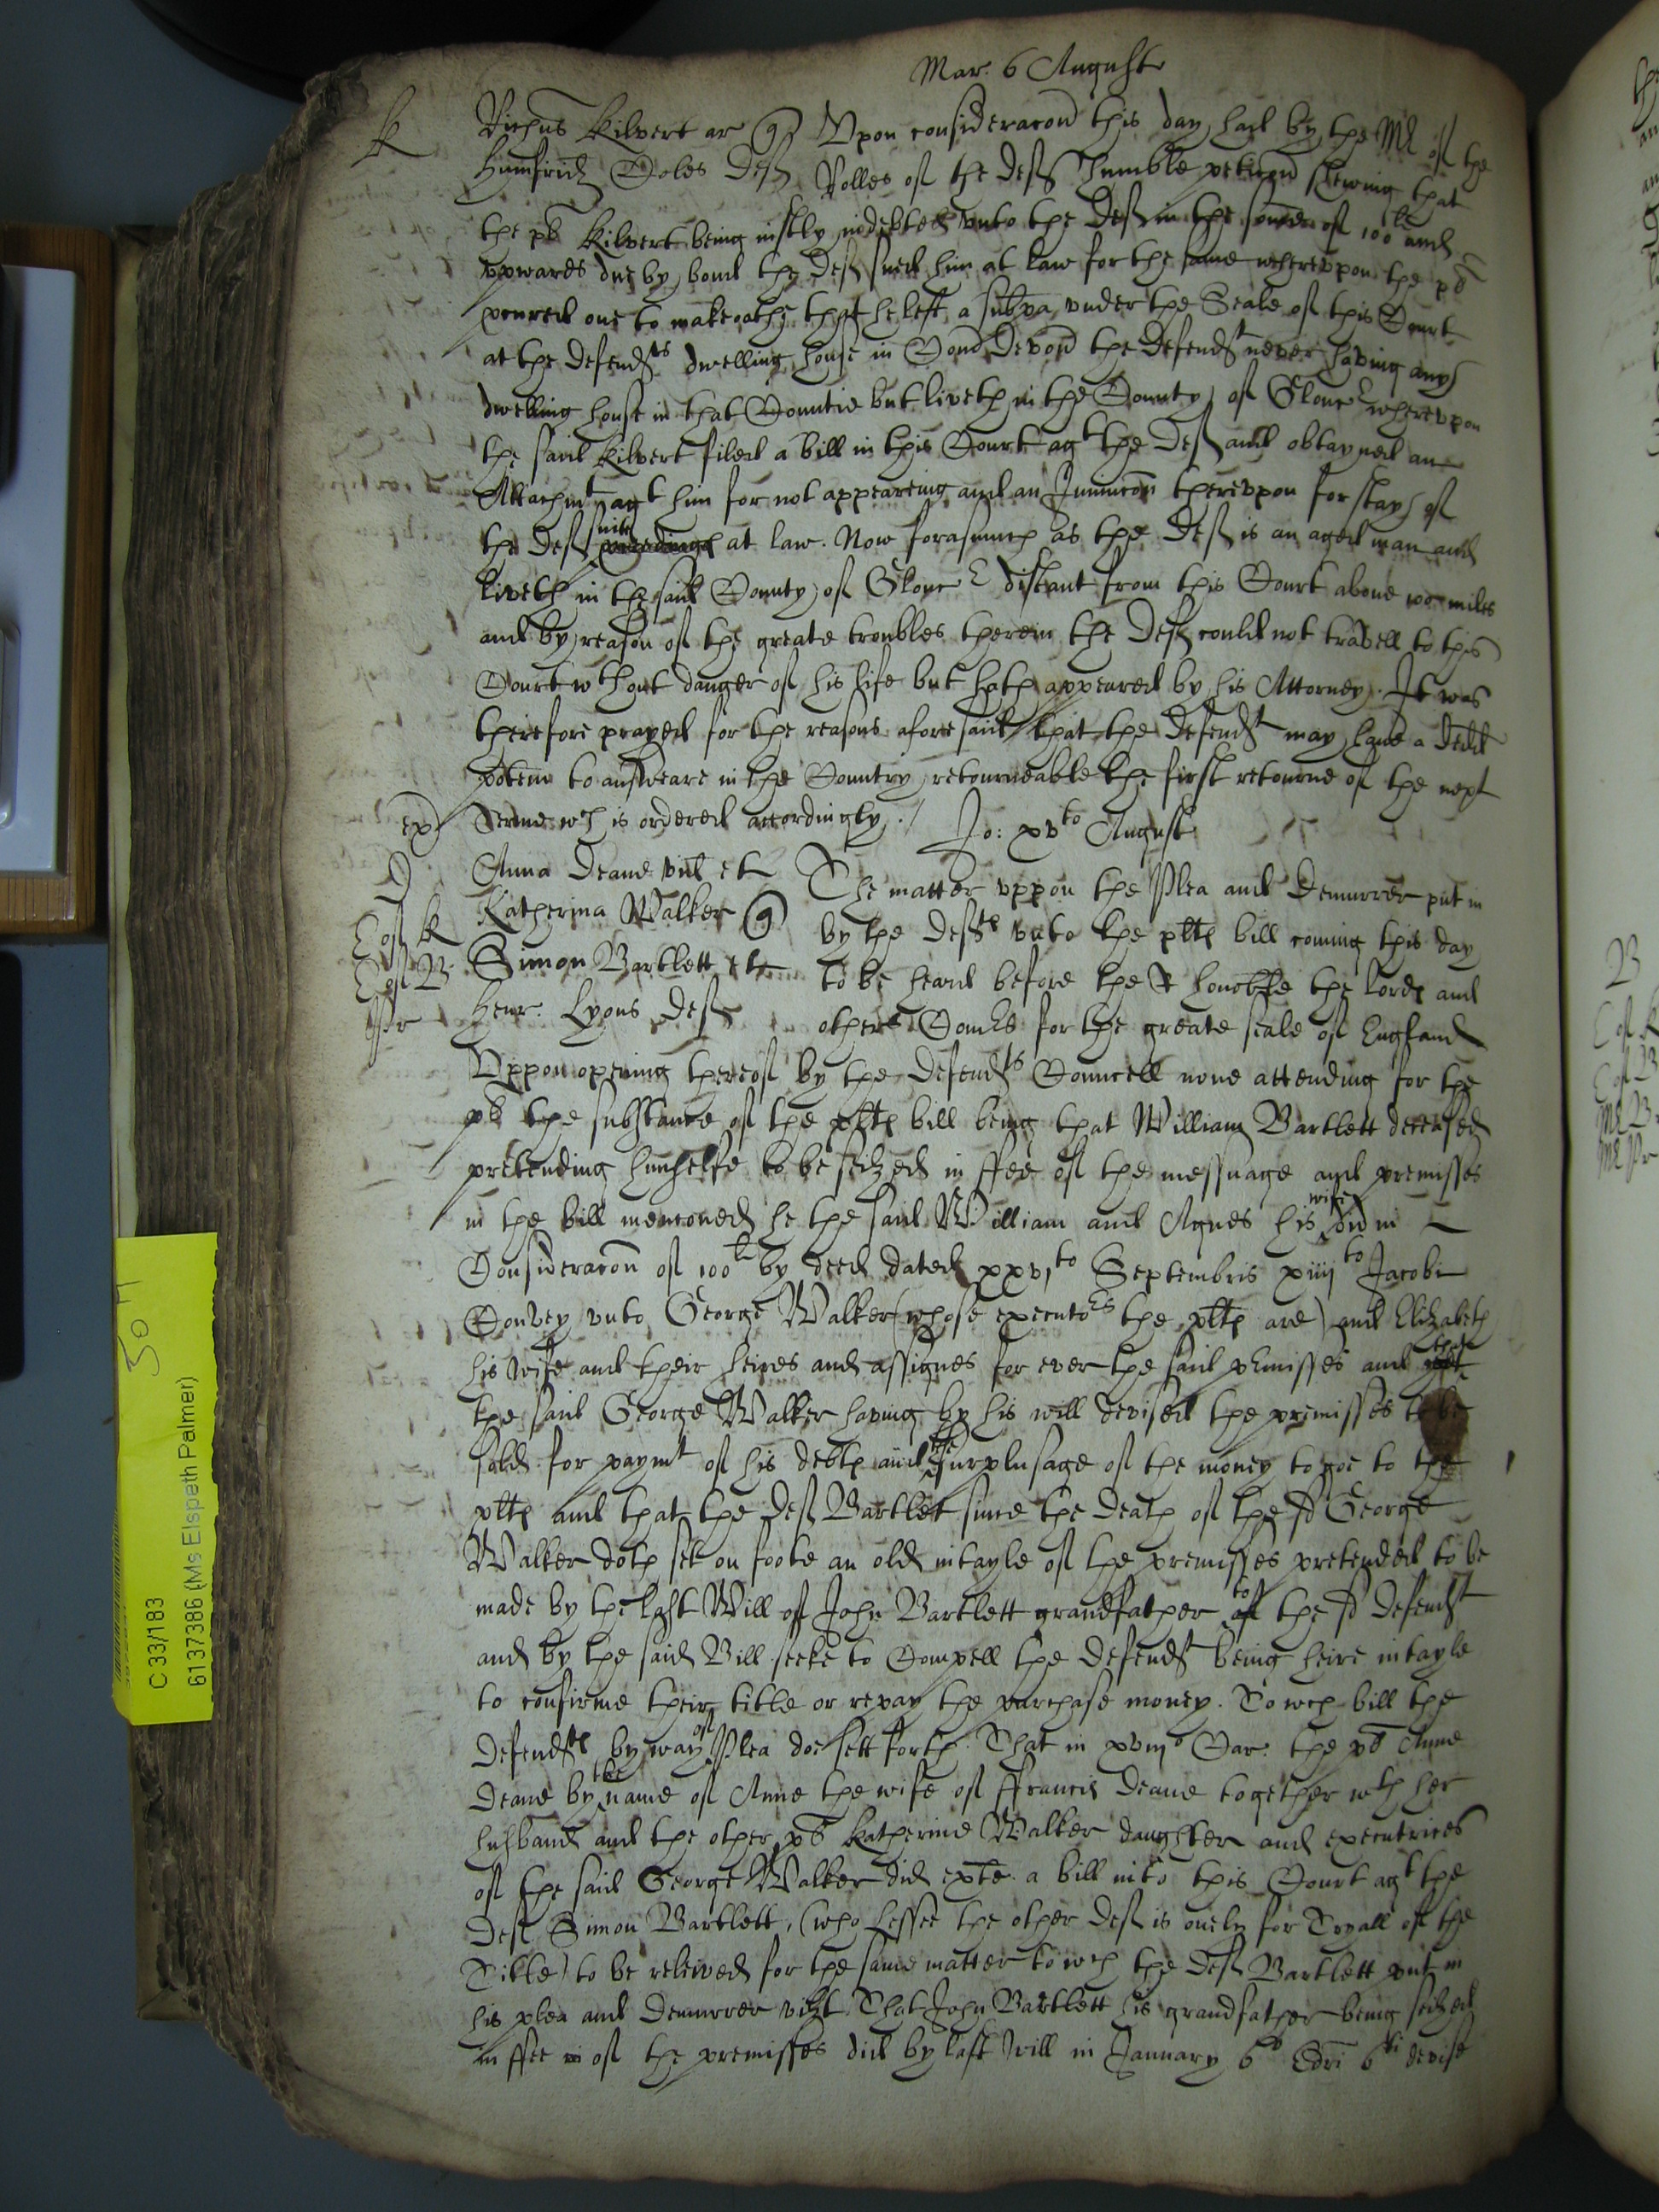 Mar. 6 Auguste
K Richus Kilvert ar q Vpon consideracon this day had by the Mr of the
Humfrid Coles Deft Rolles of the Defts humble peticon shewing that
the pt Kilvert being iustly indebted vnto the Deft in the some of 100li and
vpwards due by bond the Deft sued him at law for the same wherevpon the pt
one to make oathe that he left a subpa vnder the Seale of this Court
at the defendts dwelling house in Com Devon the Defendt never having any
dwelling house in that Countie but liveth in the County of Glouc wherevpon
the said Kilvert filed a bill in this Court agt the Deft and obtayned an
Attachmt agt him for not appeareing and an Iniuncon therevpon for stay of
the Defts suite at law. Now forasmuch as the Deft is an aged man and
liveth in the said County of Glouc distant from this Court above 100 miles
and by reason of the greate troubles therein the Deft could not travell to this
Court wthout danger of his life but hath appeared by his Attorney. It was
therefore prayed for the reasons aforesaid that the Defendt may have a dedd
potem to answeare in the Country retourneable the first retourne of the next
Terme wch is ordered accordingly./
exr
Jo: xvto August
D Anna Deane vid et The matter vppon the Plea and Demurrer put in
Katherina Walker q by the Defts vnto the plts bill coming this day
Simon Bartlett et to be heard before the Rt honoble the Lords and
Henr. Lyons Deft others Comrs for the greate seale of England
Vppon opening thereof by the Defendts Councell none attending for the
pt the substance of the plts bill being that William Bartlett deceased
pretending himselfe to be seized in ffee of the messuage and premisses
in the bill menconed he the said William and Agnes his wife did in
Consideracon of 100li by deed dated xxvito Septembris xiiijto Jacobi
Convey vnto George Walker (whose executrs the plts are) and Elizabeth
his wife and their heires and assignes for ever the said pmisses and that
the said George Walker having by his will devised the premisses to be
sold for paymt of his debts and the surplusage of the money to goe to the
plts and that the Deft Bartlett since the death of the sd George
Walker doth set on foote an old intayle of the premisses pretended to be
made by the last Will of John Bartlett grandfather to the sd Defendt
and by the said Bill seeke to Compell the Defendt being heire intayle
to confirme their title or repay the purchase money. To wch bill the
Defendts by way of Plea doe sett forth. That in xviijo Car. the pt Anne
Deane by the name of Anne the wife of ffrancis Deane together wth her
husband and the other pt Katherine Walker daughter and executrices
of the said George Walker did exte a bill into this Court agt the
Deft Simon Bartlett, (who Lessee the other Deft is onely for Tryall of the
Title) to be releived for the same matter to wch the Deft Bartlett put in
his plea and demurrer vizt That John Bartlett his grandfather being seized
in ffee of the premisses did by last will in January 6o Edri 6ti devise
C 33/183
6137386 (Ms Elspeth Palmer)